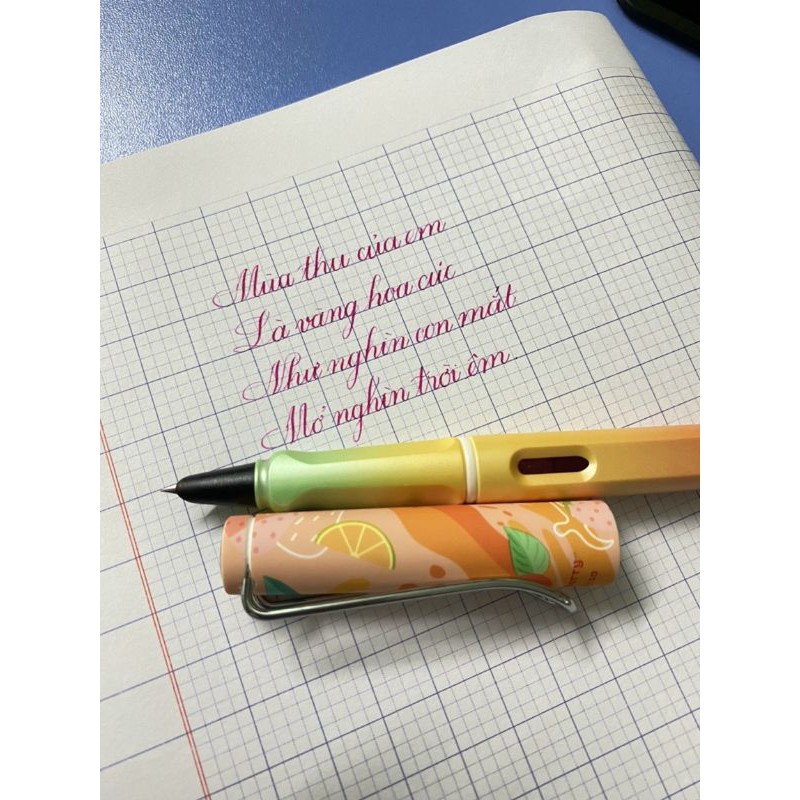 Mùa thu của em
Là vang hoa cúc
Như nghìn con mắt
Mở nghìn trời êm